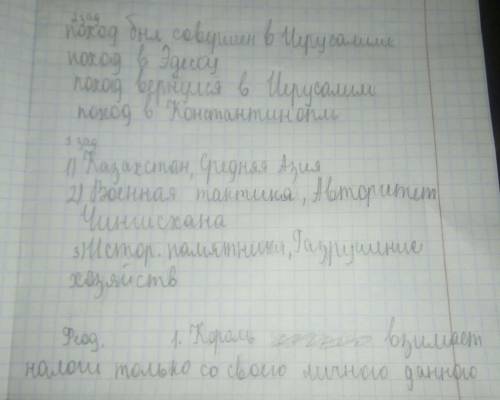 2 зад
поход был совершен в Иерусалим
поход в Эдессу
поход вернулся в Иерусалим
поход в Константинопль
3 зад
1) Казахстан, Средняя Азия
2) Военная тактика, Авторитет
Чингисхана
3) Истор. памятники, Разрушение
хозяйств
1. Король взимает
налоги только со своего личного данного